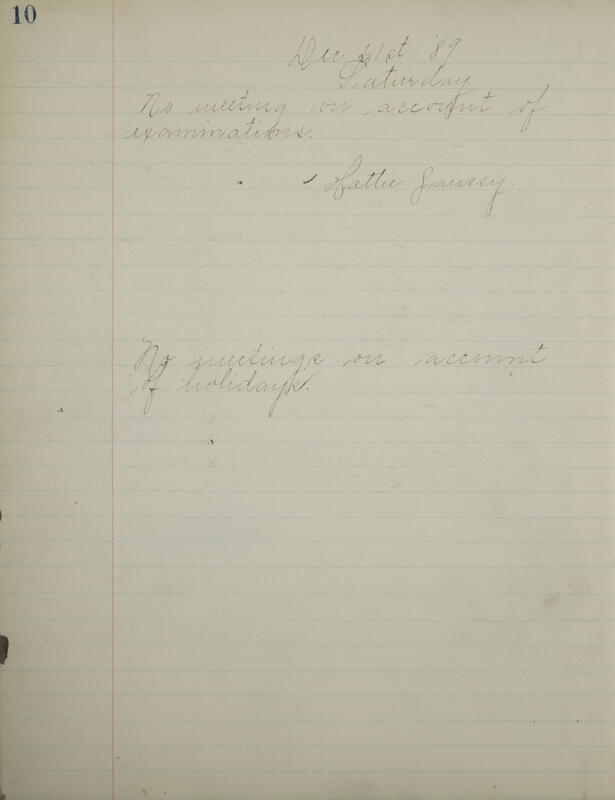 10
Dec 21st. '89
Saturday.
No meeting on account of
examinations.
Hattie
No meetings on account
of holidays.